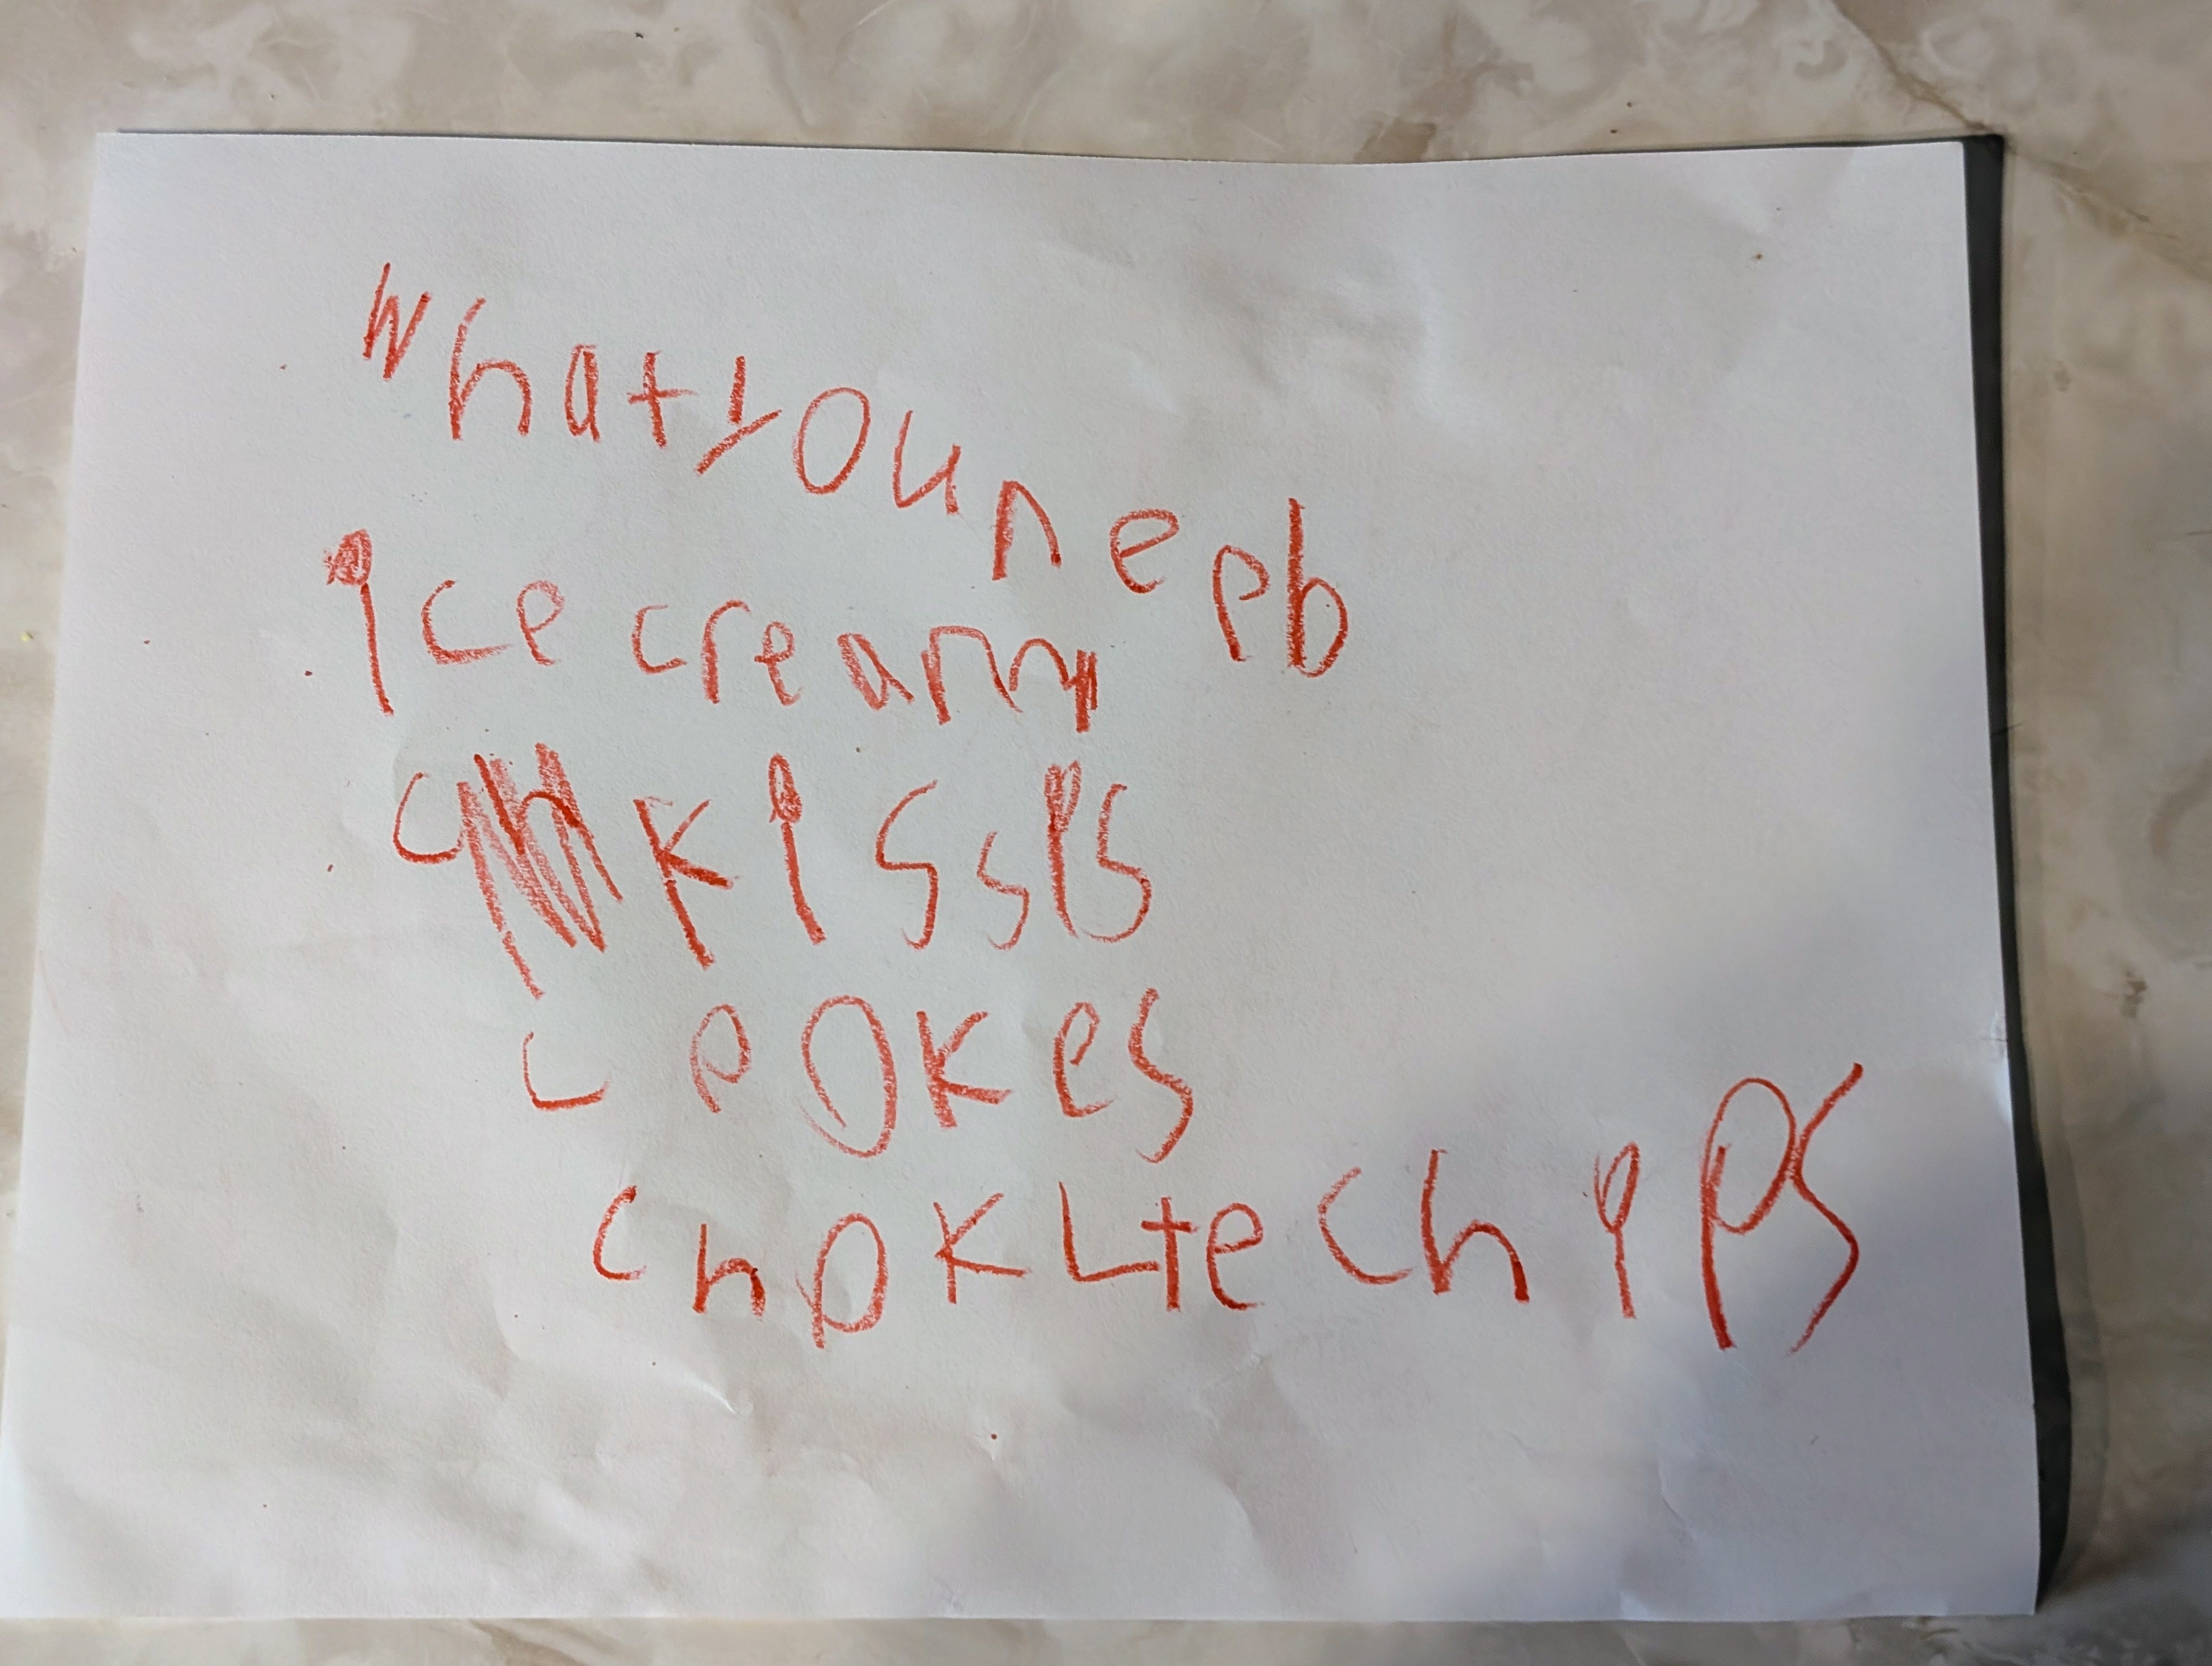 what you need
ice cream
c kisses
ceokes
chokLte chips